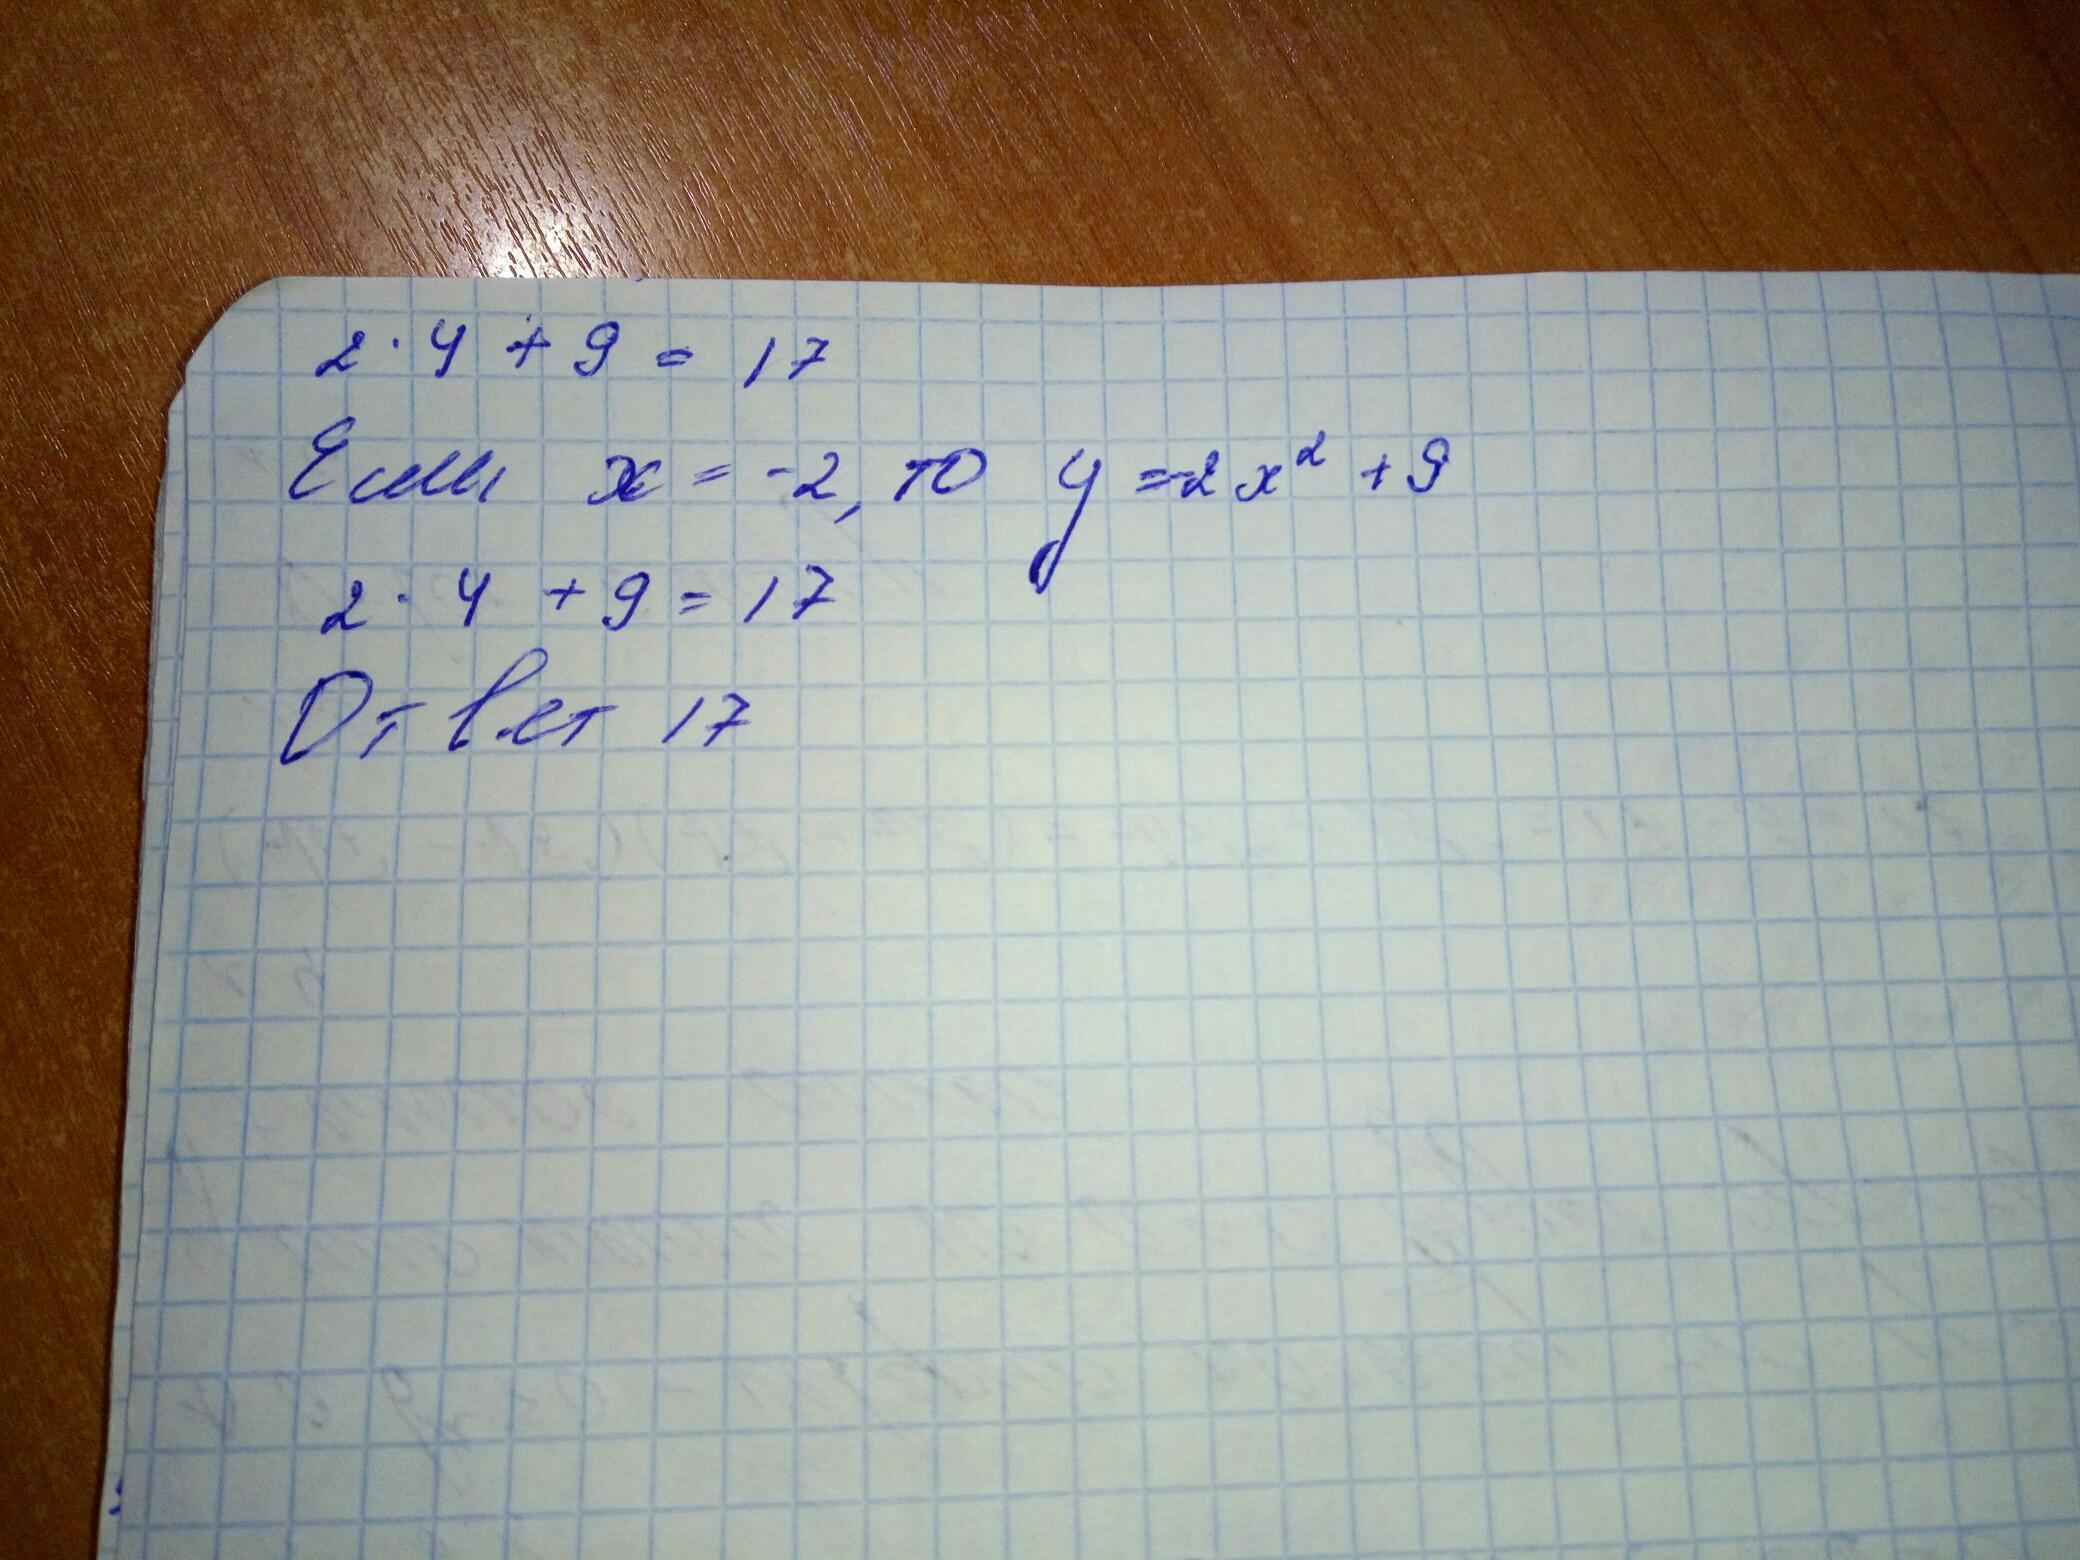 2 · 4 + 9 = 17
Если x = -2, то y = -2x² + 9
2 · 4 + 9 = 17
Ответ 17